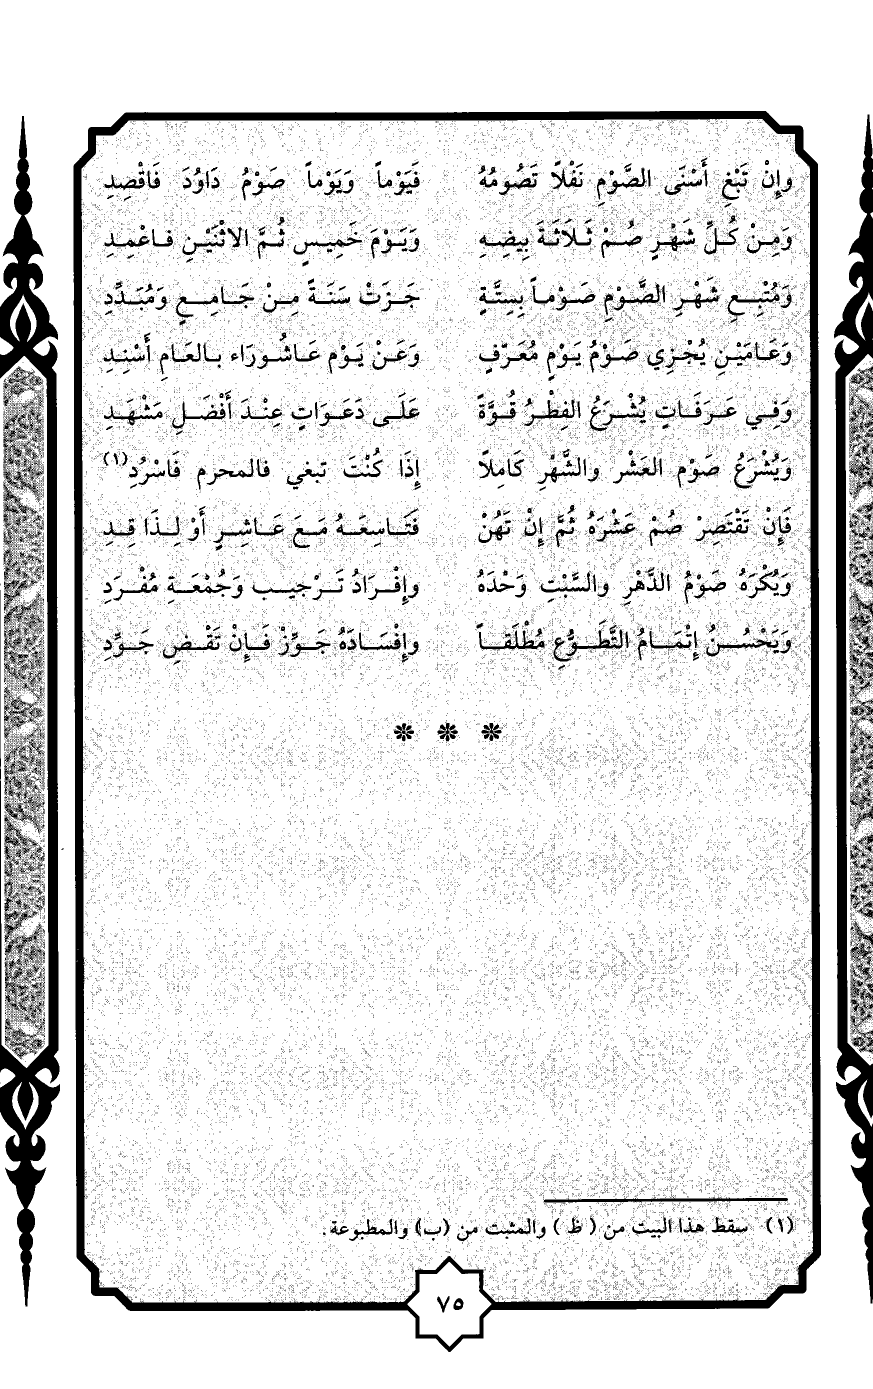 وإِنْ تَبْغِ أَسْنَى الصَّوْمِ نَفْلاً تَصُومُهُ فَيَوْماً وَيَوْماً صَوْمُ دَاوُدَ فَاقْصِدِ
وَمِنْ كُلِّ شَهْرٍ صُمْ ثَلَاثَةَ بِيضِهِ وَيَوْمَ خَمِيسٍ ثُمَّ الاثْنَيْنِ فاعْمِدِ
وَمُتْبِعِ شَهْرِ الصَّوْمِ صَوْماً بِسِتَّةٍ جَزَتْ سَنَةً مِنْ جَامِعٍ وَمُبَدَّدِ
وَعَامَيْنِ يُجْزِي صَوْمُ يَوْمِ مُعَرَّفٍ وَعَنْ يَوْم عَاشُورَاء بالعَامِ أَسْنِدِ
وَفِي عَرَفَاتٍ يُشْرَعُ الفِطْرُ قُوَّةً عَلَى دَعَوَاتٍ عِنْدَ أَفْضَلِ مَشْهَدِ
وَيُشْرَعُ صَوْم العَشْر والشَّهْرِ كَامِلاً إِذَا كُنْتَ تبغي فالمحرم فَاسْرُدِ(١)
فَإِنْ تَقْتَصِرْ صُمْ عَشْرَهُ ثُمَّ إِنْ تَهُنْ فَتَاسِعَهُ مَعَ عَاشِرٍ أَوْ لِذَا قِدِ
وَيُكْرَهُ صَوْمُ الدَّهْرِ والسَّبْتِ وَحْدَهُ وإِفْرَادُ تَرْجيب وَجُمْعَةِ مُفْرَدِ
وَيَحْسُنُ إِتْمَامُ التَّطَوُّعِ مُطْلَقاً وإِفْسَادَهُ جَوِّزْ فَإِنْ تَقْضِ جَوِّدِ
(١) سقط هذا البيت من ( ظ ) والمثبت من (ب) والمطبوعة.
٧٥